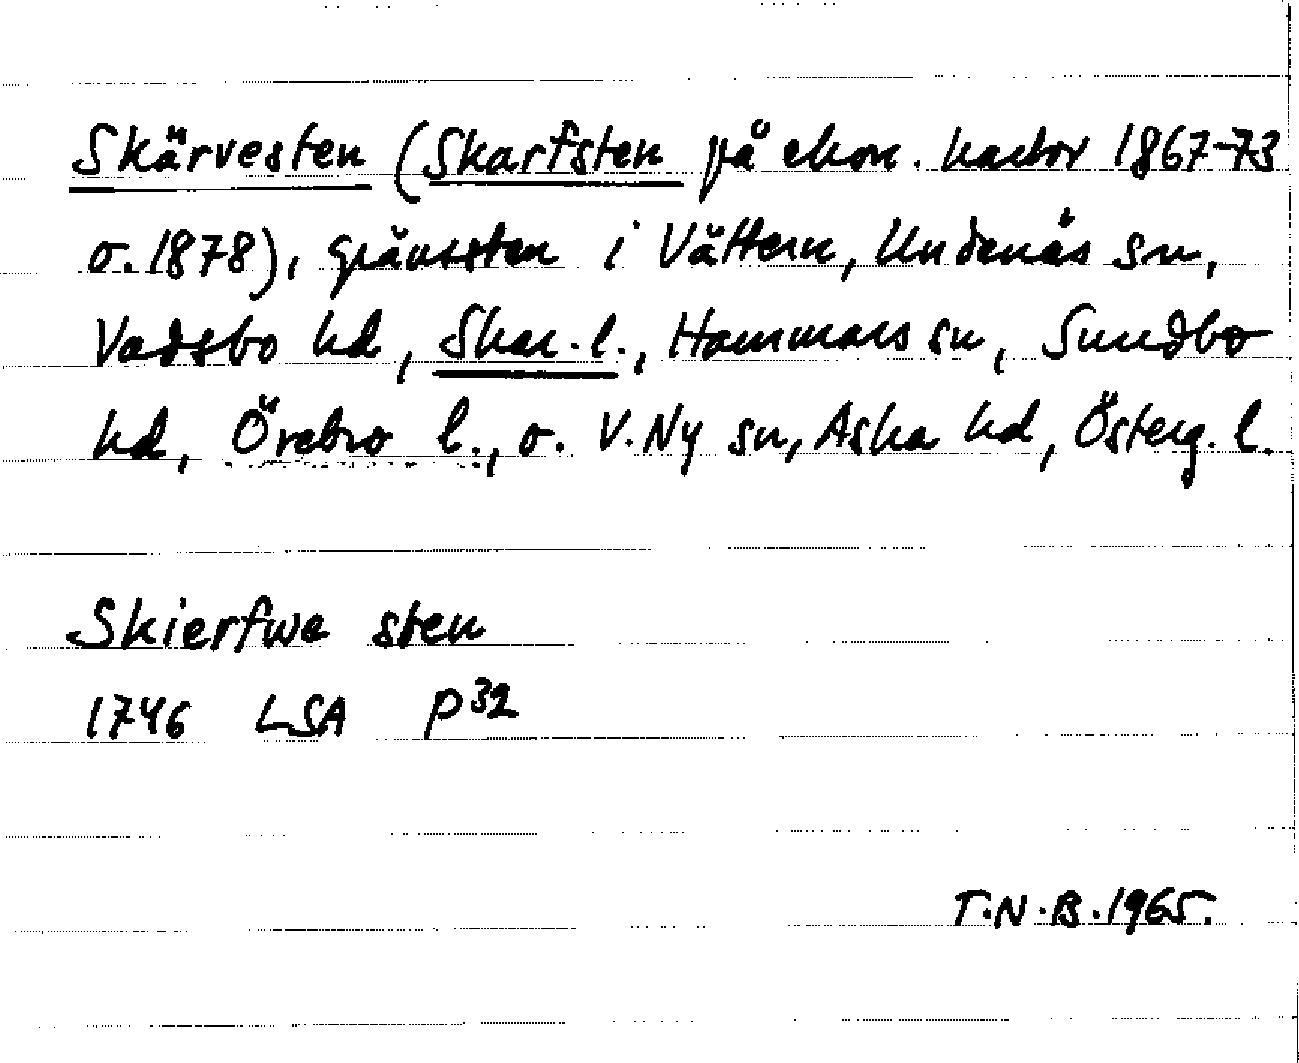 Skärvesten (Skarfsten på ekon. kartor 1867-73
o. 1878), gränssten i Vättern, Undenäs sn,
Vadsbo hd, Skar. l., Hammars sn, Sundbo
hd, Örebro l., o. V. Ny sn, Aska hd, Österg. l.
Skierfwe sten
1746 LSA P32
T.N.B. 1965.